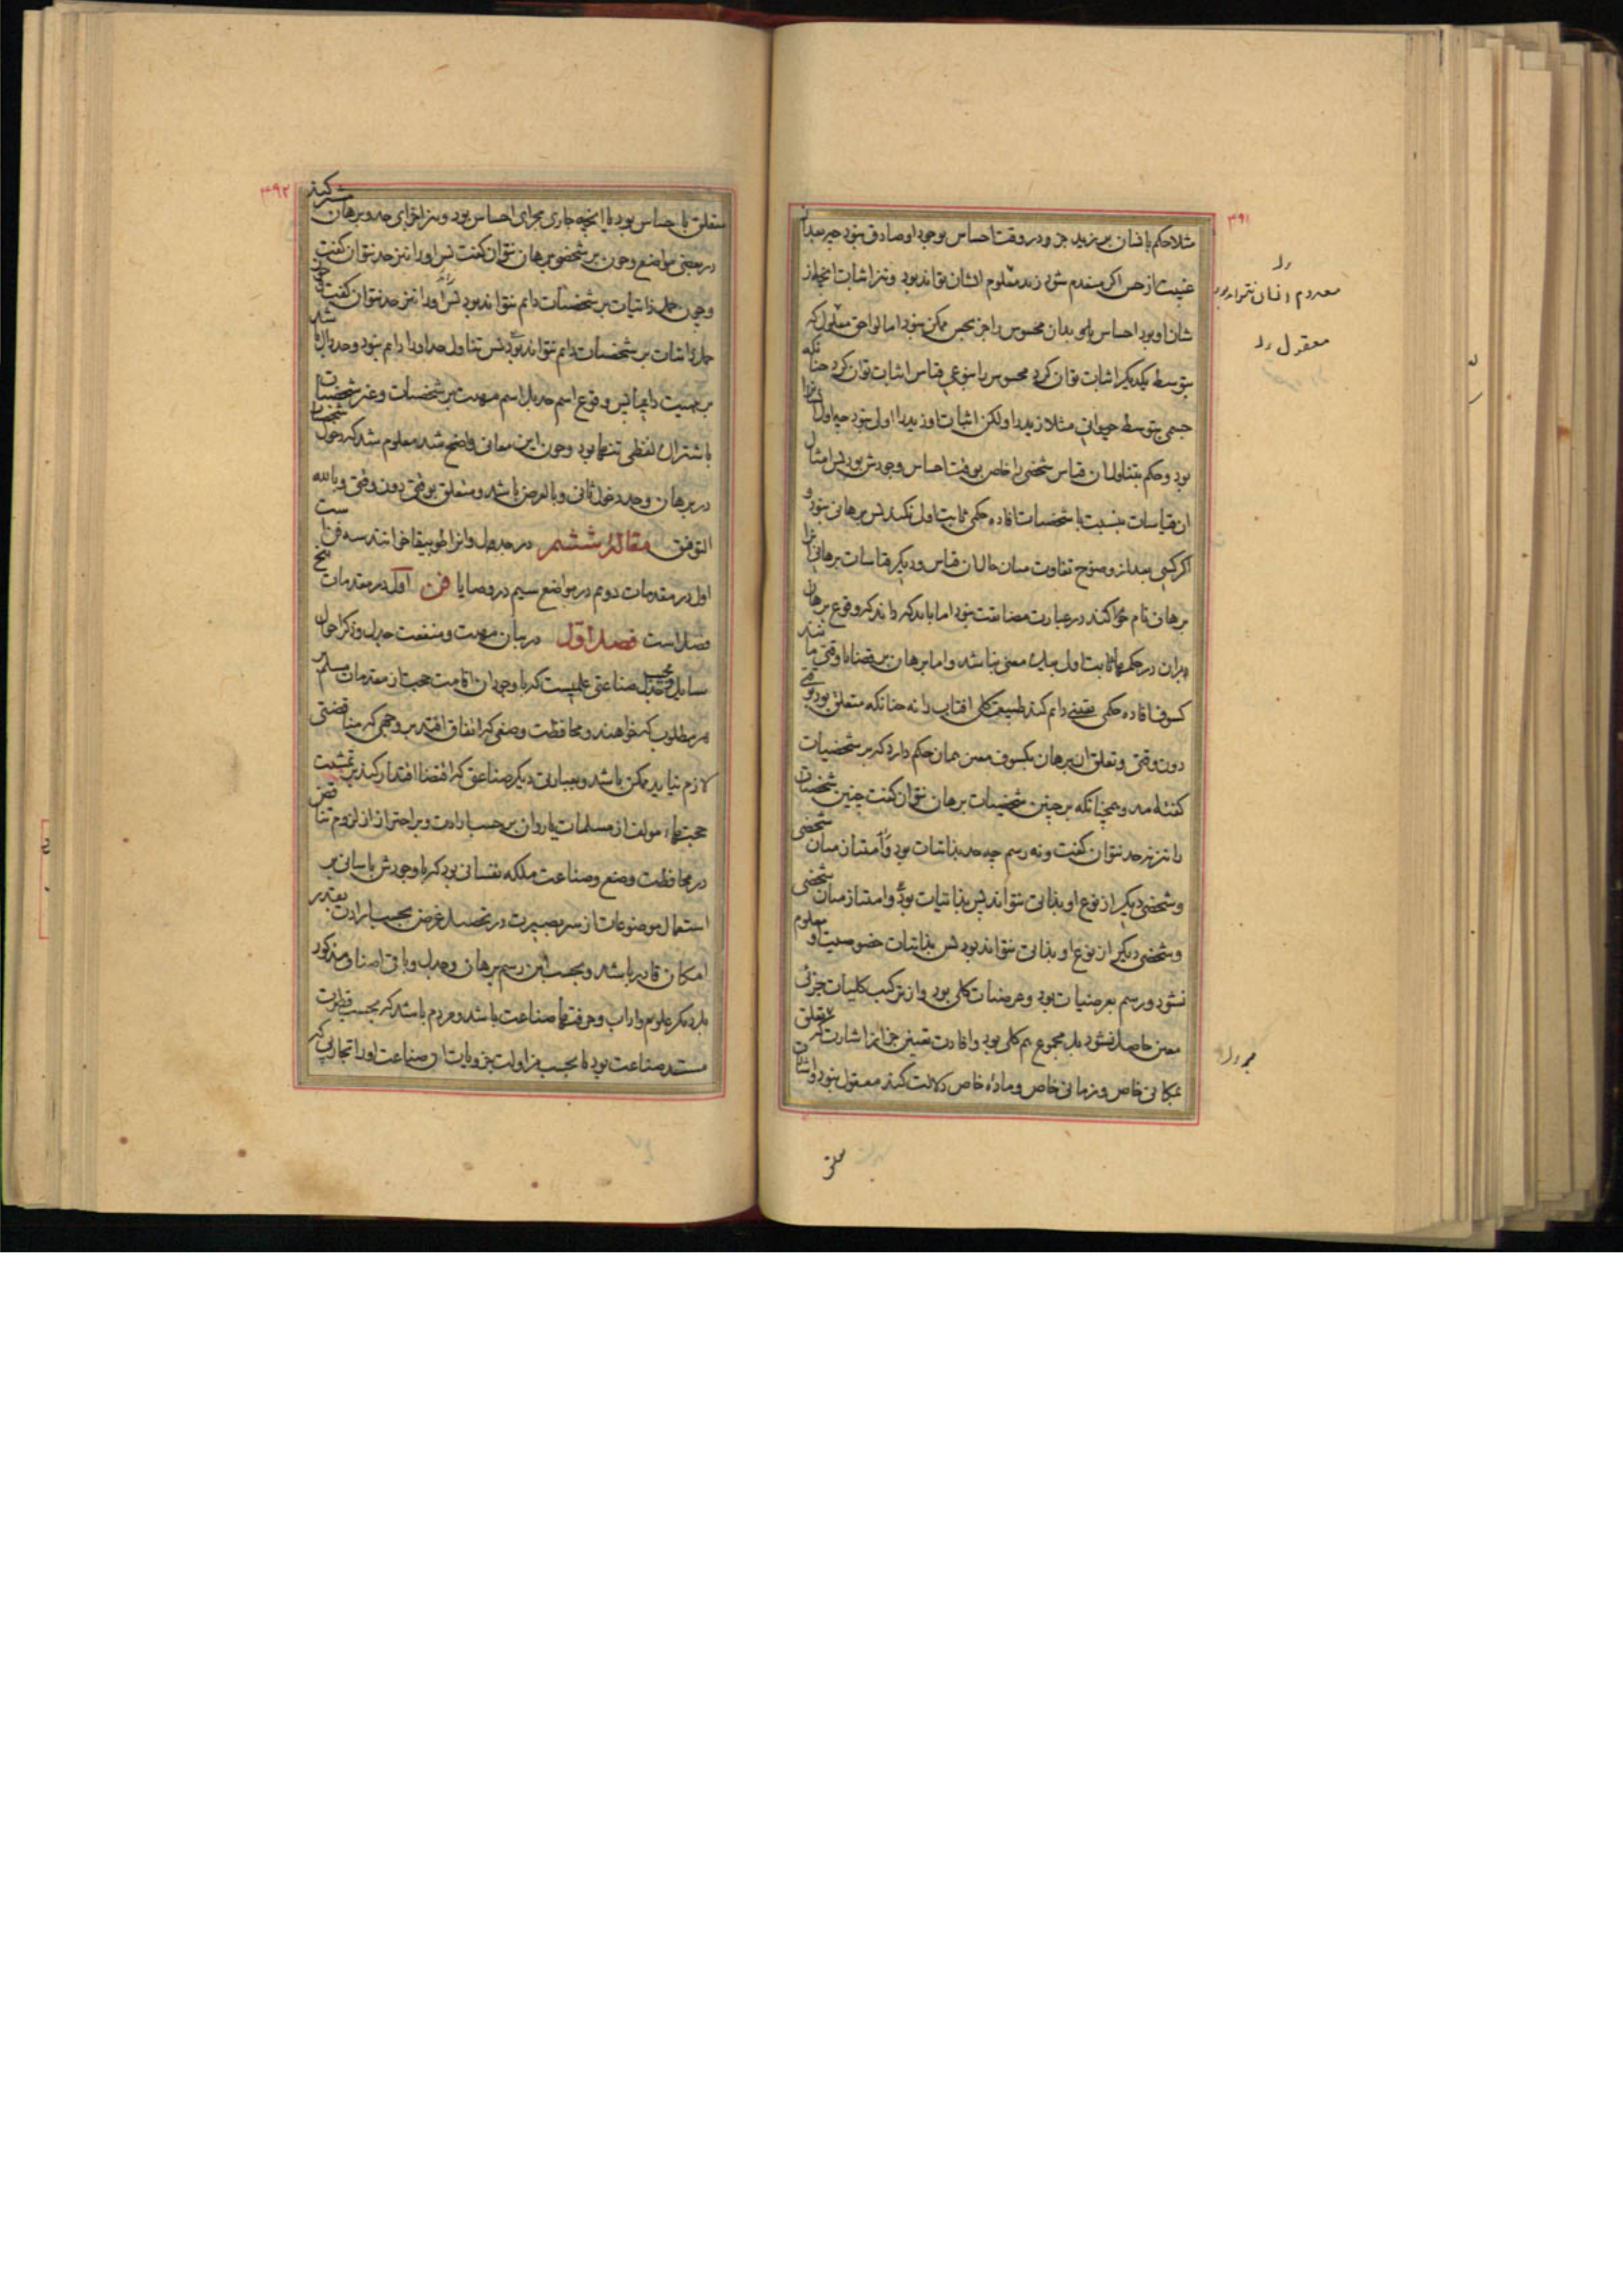 ۳۹۱
مثلا حکم بانسان بر زید جز در وقت احساس بوجود او صادق نبود چه بعد از
غیبت از حس اگر منعدم شود زید معلوم انسان نتواند بود و نیز اثبات انچه از
شان او بود احساس بلو بدان محسوس را جز بحس ممکن نبود اما لواحق معلول که
بتوسط یکدیگر اثبات توان کرد محسوس را بنوعی قیاس اثبات توان کرد چنانکه
جسمی بتوسط حیوانی مثلا زید را ولکن اثبات او زید را اول نبود چه اول
بود و حکم بتناول ان قیاس شخصی را خاص بوقت احساس وجودش بود پس امثال
ان قیاسات بنسبت با شخصیات افاده حکمی ثابت اول نکند پس برهانی نبود و
اگر کسی بعد از وضوح تفاوت میان حال ان قیاس و دیگر قیاسات برهانی انرا
برهان نام خواکند در عبارت مضایقت نبود اما باید که داند که وقوع برهان
بران در حکمها ثابت اول بیک معنی نباشد و اما برهان بر قضایا وقتی مانند
کسوف افاده حکمی یقینی دایم کند طبیعت کلی افتاب را نه چنانکه متعلق بود بوقتی
دون وقتی و تعلق ان برهان بکسوف معین همان حکم دارد که بر شخصیات
گفته امد و همچنانکه بر چنین شخصیات برهان نتوان گفت چنین شخصیات
را نیز نه حد نتوان گفت و نه رسم چه حد بذاتیات بود و امتیاز میان شخصی
و شخصی دیگر از نوع او بذاتی نتواند پس بذاتیات بود و امتیاز میان شخصی
و شخصی دیگر از نوع او بذاتی نتواند بود پس بذاتیات خصوصیت او معلوم
نشود و رسم بعرضیات بود و عرضیات کلی بود و از ترکیب کلیات جزئی
معین حاصل نشود بلکه مجموع هم کلی بود و افادت تعیین جز انرا اشارت که تعلق
بمکانی خاص و زمانی خاص و ماده خاص دلالت کند معقول نبود و اشارت
معدوم انسان نتواند بود
معقول
متعلق
۳۹۲
متعلق باحساس بود یا انچه جاری مجرای احساس بود و نیز اجزای حد و برهان مشترکند
در بعضی مواضع و چون بر شخصی برهان نتوان گفت پس او را نیز حد نتوان گفت
و چون حمل ذاتیات بر شخصیات دایم نتواند بود پس او را نیز حد نتوان گفت چون
حمل ذاتیات بر شخصیات دایم نتواند بود پس تناول حد او را دایم نبود و حد دال باشد
بر مهیت دایما پس وقوع اسم حد بل اسم مهیت بر شخصیات و غیر شخصیات
باشتراک لفظی تنها بود و چون این معانی واضح شد معلوم شد که دخول شخصیات
در برهان و حد دخول ثانی و بالعرض باشد و متعلق بوقتی دون وقتی و بالله
التوفیق مقالهٔ ششم در جدل و انرا طوبیقا خوانند سه فن است
اول در مقدمات دوم در مواضع سیم در وصایا فن اول در مقدمات پنج
فصل است فصل اول در بیان مهیت و منفعت جدل و ذکر احوال
سایل و مجیب جدل صناعتی علمیست که با وجود ان اقامت حجت از مقدمات مسلم
بر مطلوب که خواهند و محافظت وضعی که اتفاق افتد بر وجهی که مناقضتی
لازم نیاید ممکن باشد و بعبارتی دیگر صناعتی که اقتضا اقتدار کند بر تمشیت
حجتهاء مولف از مسلمات یا ردان بر حسب ارادت و بر احتراز از لزوم تناقض
در محافظت وضع و صناعت ملکه نفسانی بود که با وجودش باسانی بر
استعمال موضوعات از سر بصیرت در تحصیل غرض بحسب ارادت بقدر
امکان قادر باشد و بحسب این رسم برهان و جدل و باقی اصناف مذکور
بلکه دیگر علوم و اداب و حرفتها صناعت باشد و مردم باشد که بحسب فطرت
مستعد صناعت بود تا بحسب مزاولت جزویات ان صناعت او را تجاربی که